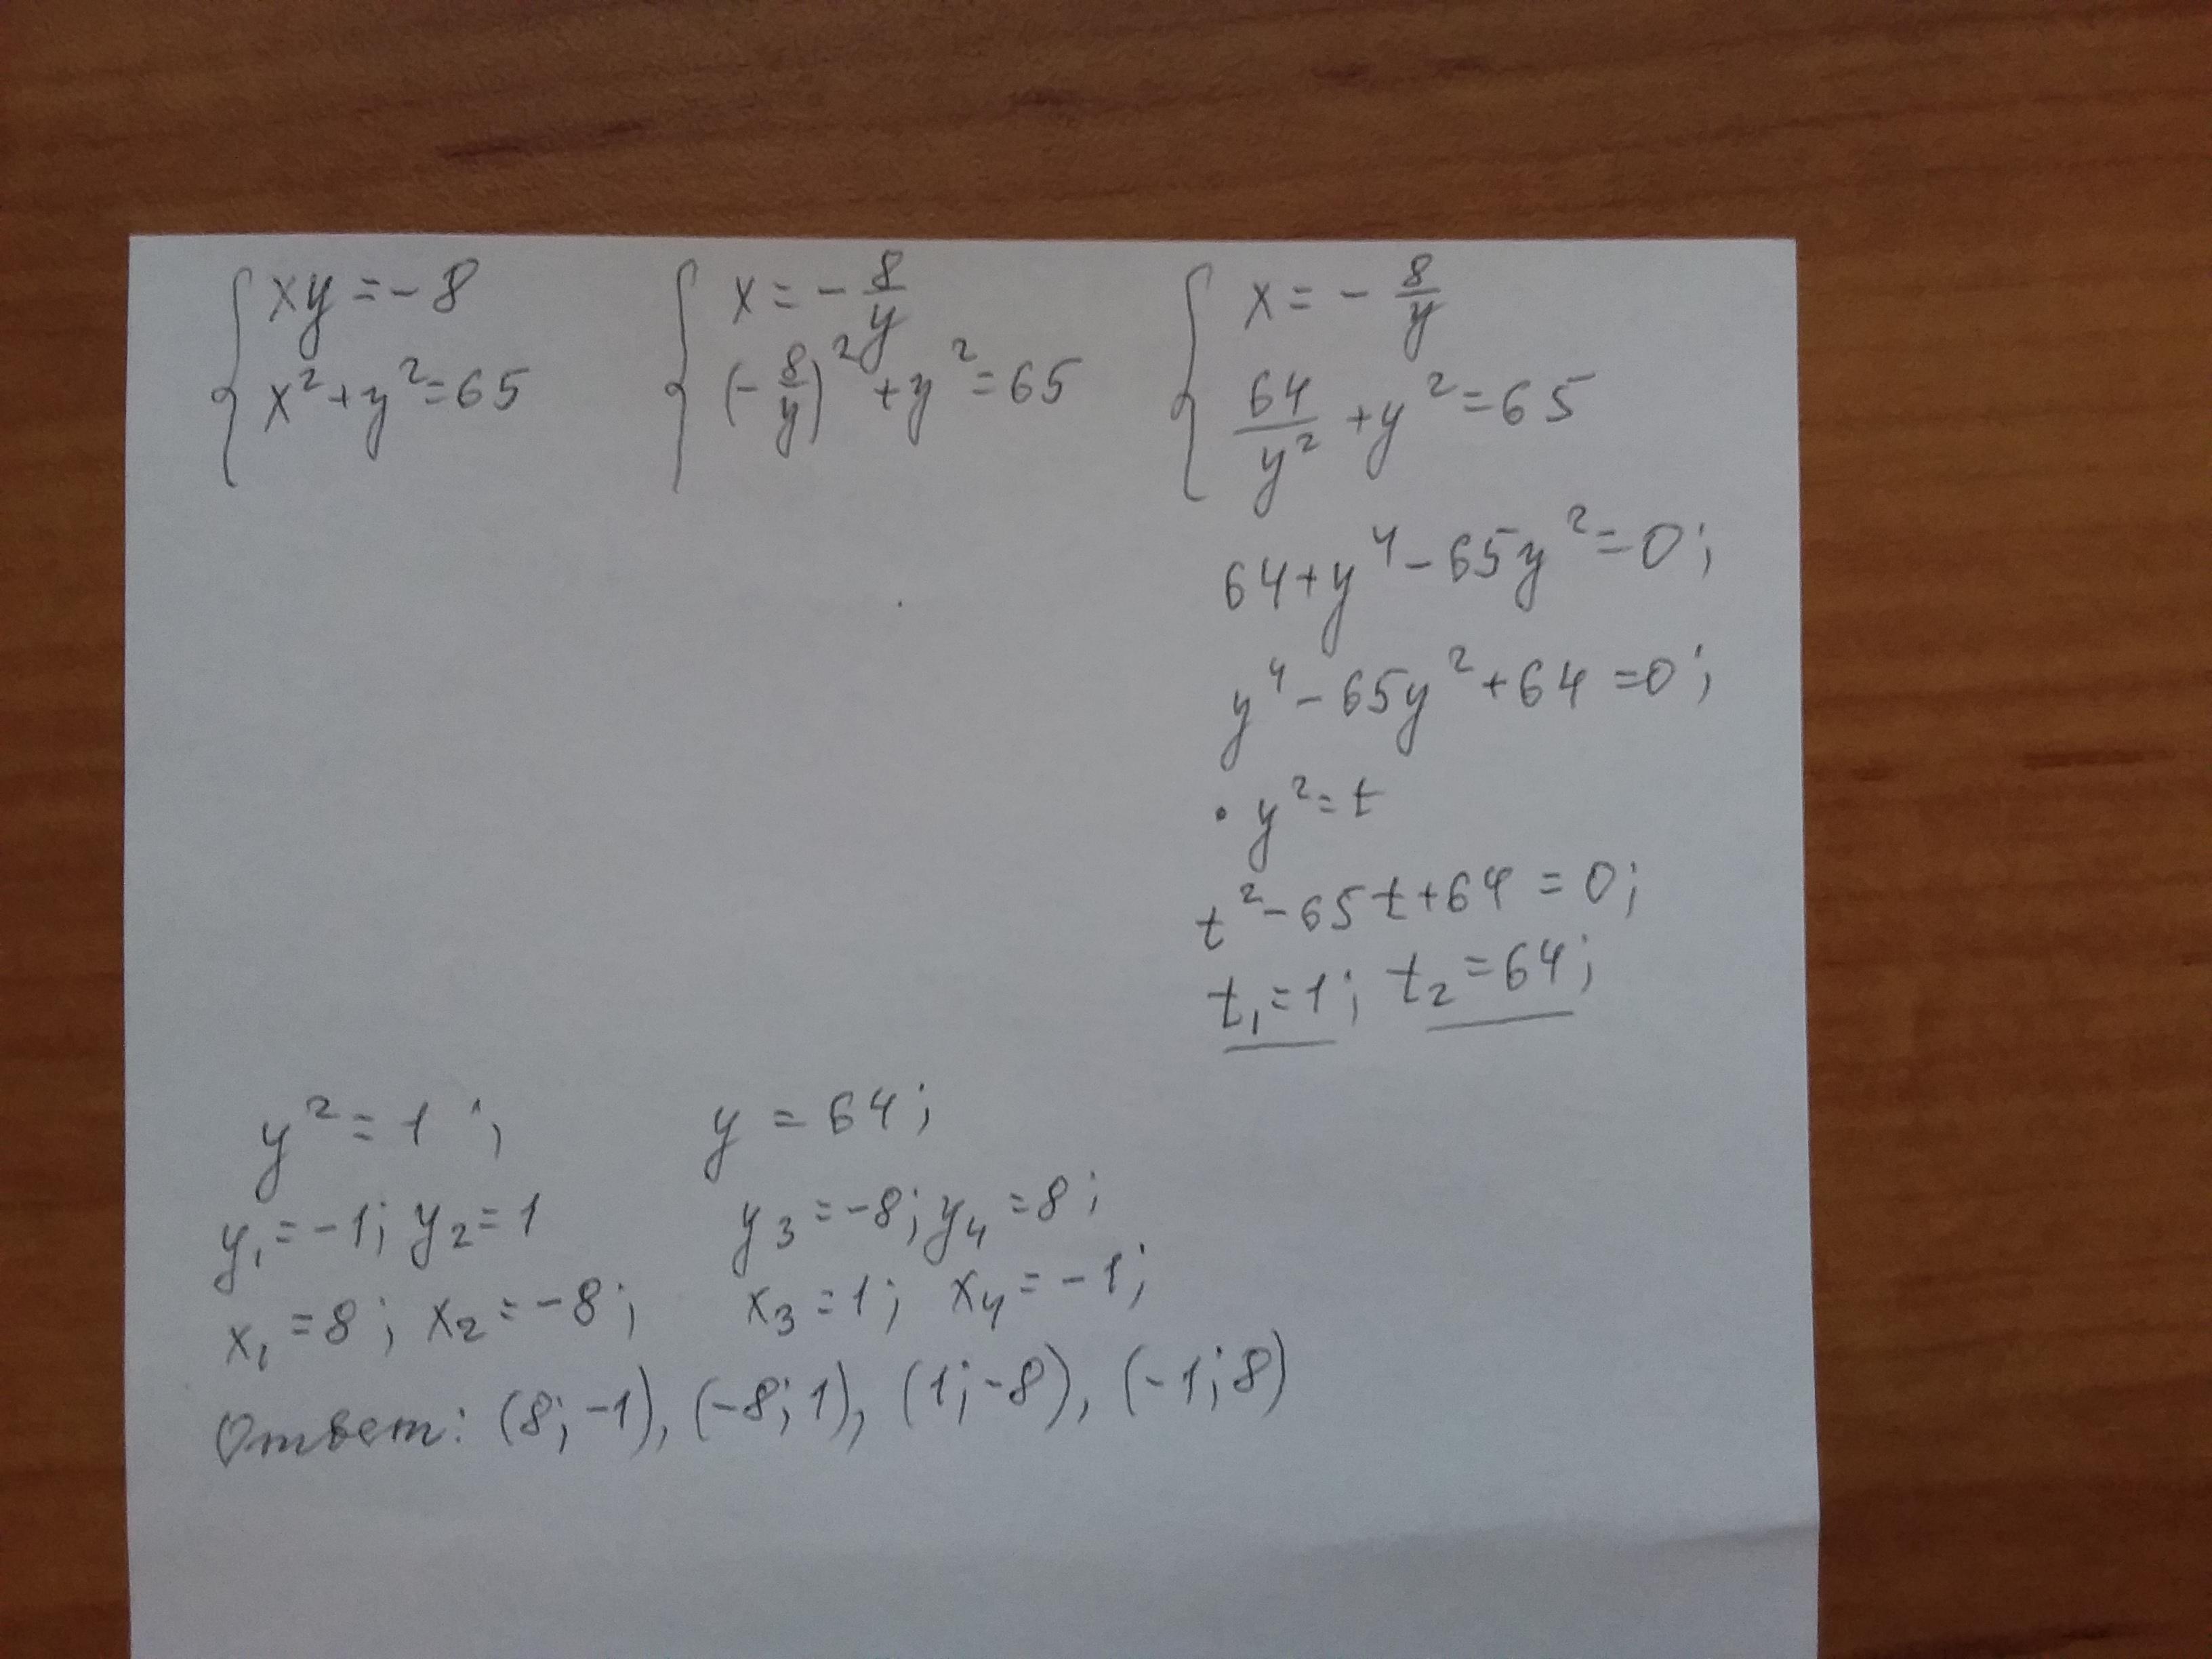 { xy = -8    { x = - 8/y    { x = - 8/y
{ x² + y² = 65    { (- 8/y)² + y² = 65    { 64/y² + y² = 65
64 + y⁴ - 65y² = 0;
y⁴ - 65y² + 64 = 0;
• y² = t
t² - 65t + 64 = 0;
t₁ = 1; t₂ = 64;
y² = 1;    y = 64;
y₁ = -1; y₂ = 1    y₃ = -8; y₄ = 8;
x₁ = 8; x₂ = -8;    x₃ = 1; x₄ = -1;
Ответ: (8; -1), (-8; 1), (1; -8), (-1; 8)